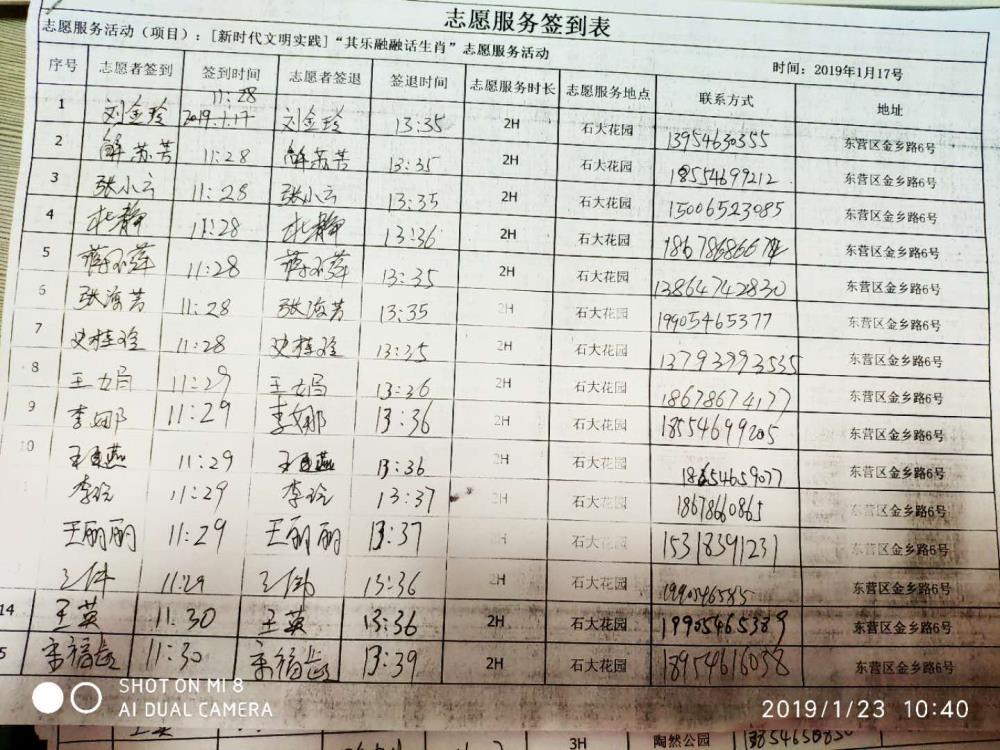 志愿服务签到表
志愿服务活动（项目）：[新时代文明实践]“其乐融融话生肖”志愿服务活动 时间：2019年1月17号
序号 志愿者签到 签到时间 志愿者签退 签退时间 志愿服务时长 志愿服务地点 联系方式 地址
1 刘金玲 11:28 2019.1.17 刘金玲 13:35 2H 石大花园 13954630355 东营区金乡路6号
2 解苏芳 11:28 解苏芳 13:35 2H 石大花园 18554699212 东营区金乡路6号
3 张小云 11:28 张小云 13:35 2H 石大花园 15006523085 东营区金乡路6号
4 杜静 11:28 杜静 13:36 2H 石大花园 东营区金乡路6号
5 11:28 13:35 2H 石大花园 13864742830 东营区金乡路6号
6 张海芳 11:28 张海芳 13:35 2H 石大花园 19905465377 东营区金乡路6号
7 史桂玲 11:28 史桂玲 13:35 2H 石大花园 13793993535 东营区金乡路6号
8 王娟 11:29 王娟 13:36 2H 石大花园 18678674177 东营区金乡路6号
9 李娜 11:29 李娜 13:36 2H 石大花园 18554699205 东营区金乡路6号
10 11:29 13:36 2H 石大花园 18654659077 东营区金乡路6号
11:29 13:37 2H 石大花园 18678660865 东营区金乡路6号
王丽丽 11:29 王丽丽 13:37 2H 石大花园 15318391231 东营区金乡路6号
11:29 13:36 2H 石大花园 东营区金乡路6号
14 王英 11:30 王英 13:36 2H 石大花园 19905465389 东营区金乡路6号
5 宋福长 11:30 宋福长 13:39 2H 石大花园 18954616058 东营区金乡路6号
SHOT ON MI 8
AI DUAL CAMERA
2019/1/23 10:40
3H 陶然公园